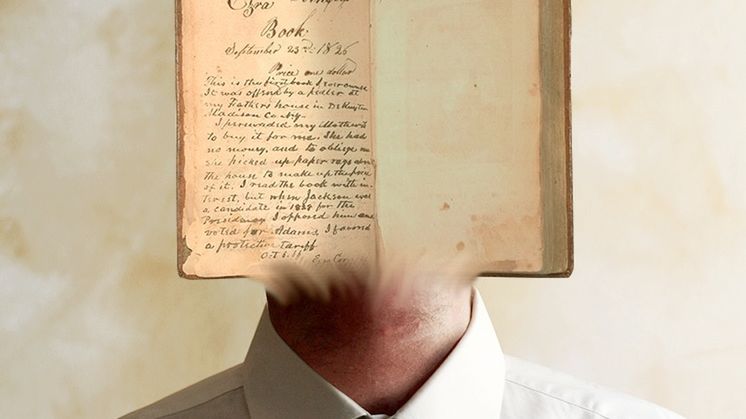 Ezra
Book.
September 23rd 1826
Price one dollar
This is the first book I ever owned
It was offered by a pedler at
my Father's house in DeRuyter
Madison County.
I persuaded my Mother
to buy it for me. She had
no money, and to oblige me
she picked up paper rags about
the house to make up the price
of it. I read the book with in-
terest, but when Jackson was
a candidate in 1828 for the
Presidency I opposed him and
voted for Adams, I favored
a protective tariff
Oct Ezra Cor